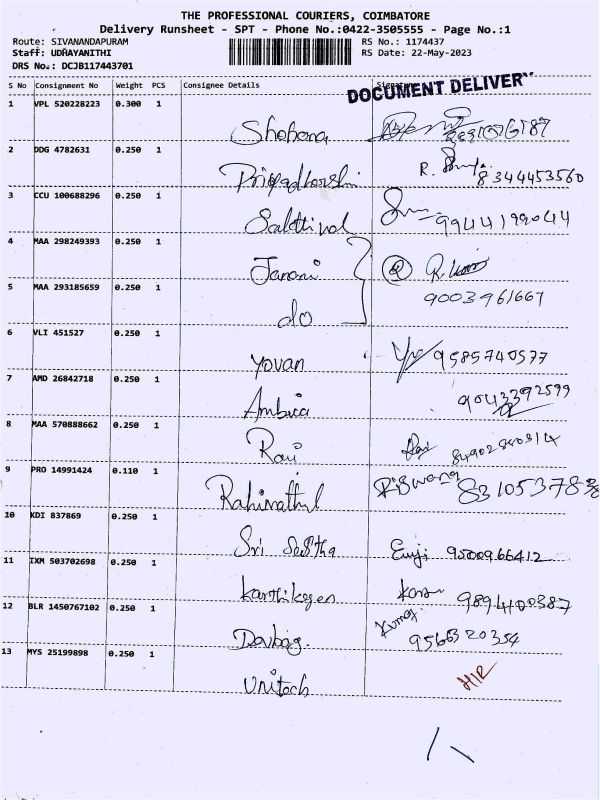 THE PROFESSIONAL COURIERS, COIMBATORE
Delivery Runsheet - SPT - Phone No.:0422-3505555 - Page No.:1
Route: SIVANANDAPURAM RS No.: 1174437
Staff: UDHAYANITHI RS Date: 22-May-2023
DRS No.: DCJB117443701
DOCUMENT DELIVER
S No Consignment No Weight PCS Consignee Details
1 VPL 520228223 0.300 1
Shobana
2 DDG 4782631 0.250 1
Priyadharshini R. 8344453560
3 CCU 100688296 0.250 1
Sakthivel 9944199044
4 MAA 298249393 0.250 1
Janani R.
5 MAA 293185659 0.250 1 9003961667
do
6 VLI 451527 0.250 1
Yovan 9585740577
7 AMD 26842718 0.250 1 9043392599
Ambica
8 MAA 570888662 0.250 1
Ravi Ravi
9 PRO 14991424 0.110 1
Rahimathul Riswana
10 KDI 837869 0.250 1
Sri 9500966412
11 IXM 503702698 0.250 1
Karthikeyen 9894100387
12 BLR 1450767102 0.250 1 Kumar
9566320354
13 MYS 25199898 0.250 1
Unitech